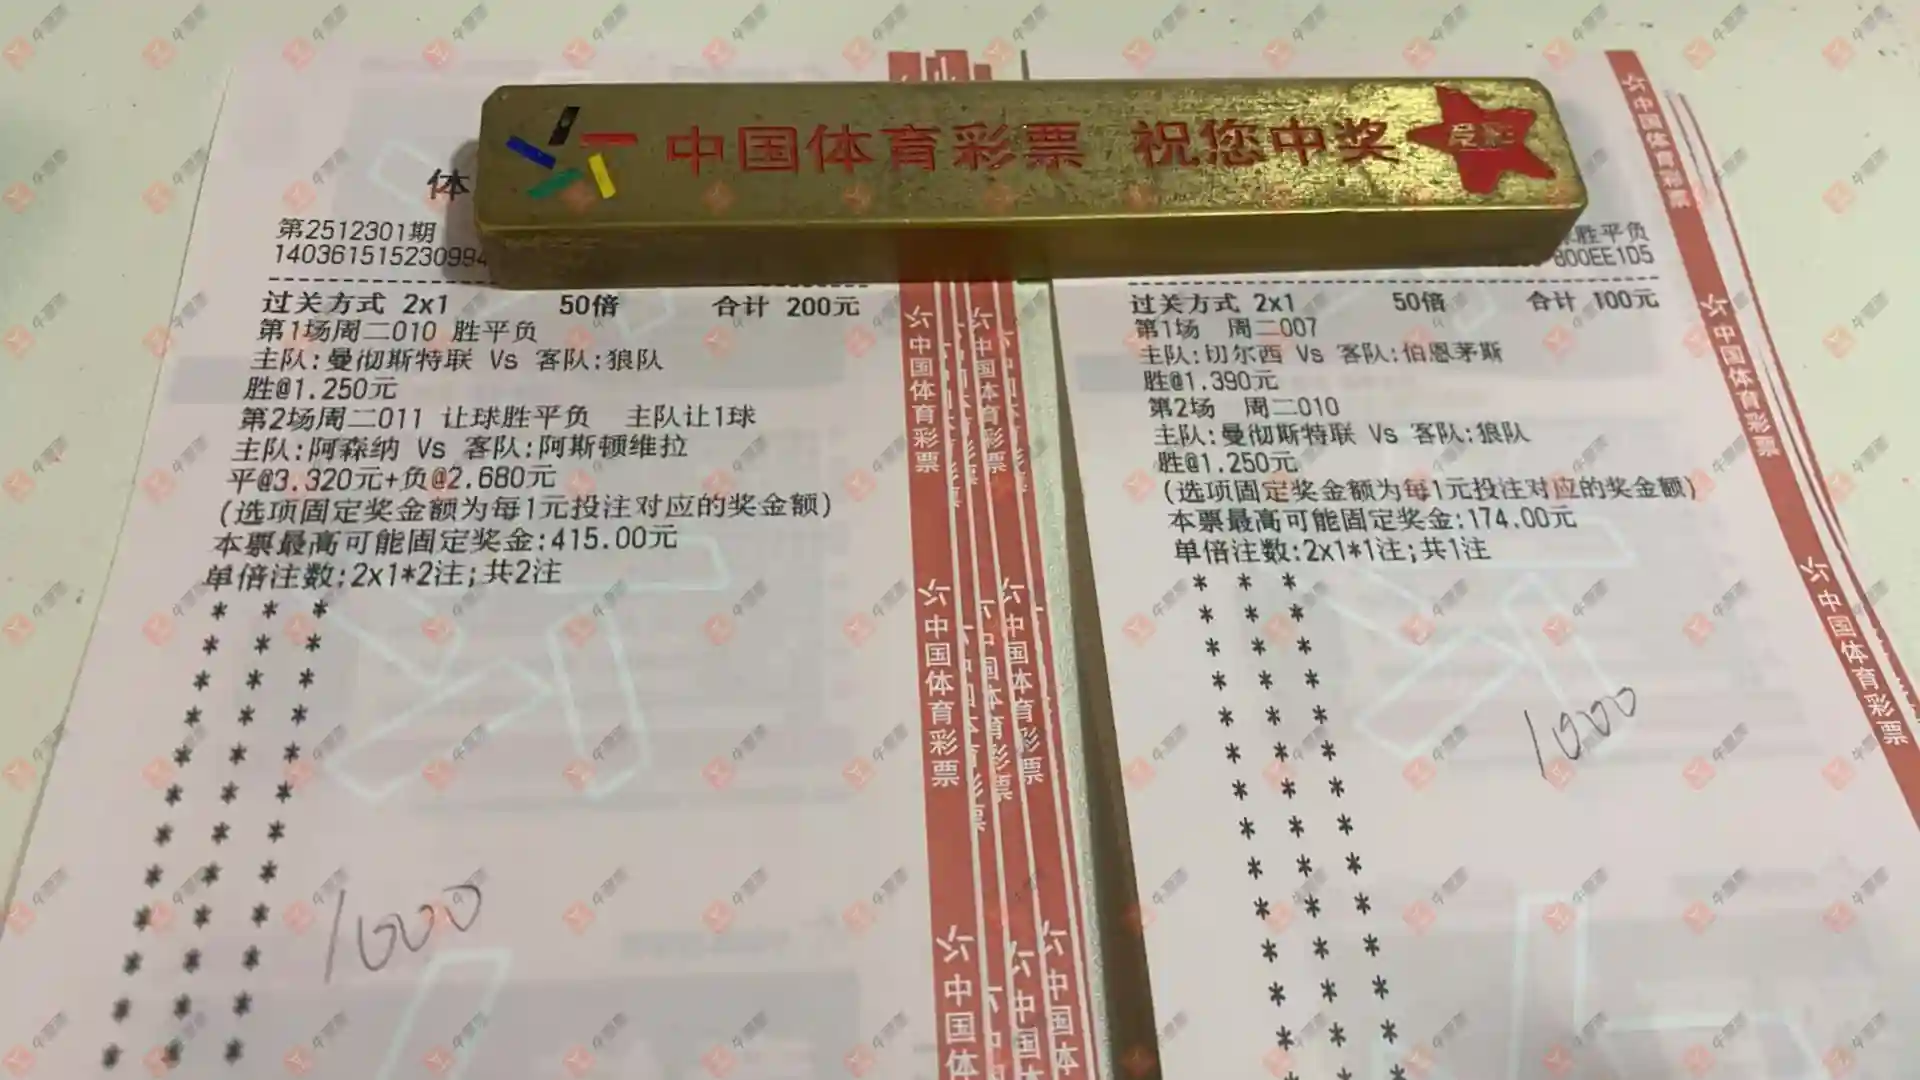 中国体育彩票 祝您中奖
体
第2512301期
14036151523099
过关方式 2x1 50倍 合计 200元
第1场周二010 胜平负
主队:曼彻斯特联 Vs 客队:狼队
胜@1.250元
第2场周二011 让球胜平负 主队让1球
主队:阿森纳 Vs 客队:阿斯顿维拉
平@3.320元+负@2.680元
(选项固定奖金额为每1元投注对应的奖金额)
本票最高可能固定奖金:415.00元
单倍注数:2x1*2注;共2注
1000
胜平负
800EE1D5
过关方式 2x1 50倍 合计 100元
第1场 周二007
主队:切尔西 Vs 客队:伯恩茅斯
胜@1.390元
第2场 周二010
主队:曼彻斯特联 Vs 客队:狼队
胜@1.250元
(选项固定奖金额为每1元投注对应的奖金额)
本票最高可能固定奖金:174.00元
单倍注数:2x1*1注;共1注
1000
中国体育彩票
中国体育彩票
中国体
中国体育彩票
中国体育彩票
中国体育彩票